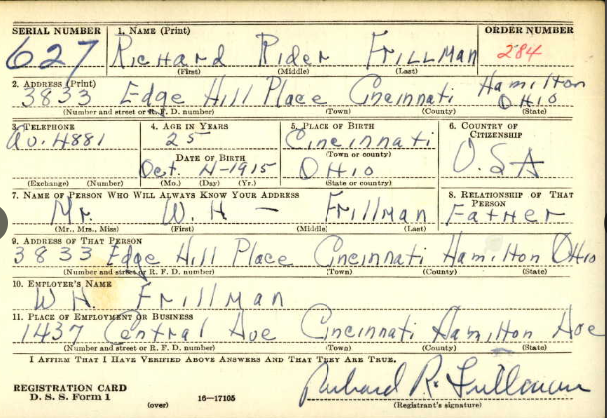 SERIAL NUMBER 1. NAME (Print) ORDER NUMBER
627 Richard Rider Frillman 284
(First) (Middle) (Last)
2. ADDRESS (Print)
3833 Edge Hill Place Cncinnati Hamilton Ohio
(Number and street or R. F. D. number) (Town) (County) (State)
3. TELEPHONE 4. AGE IN YEARS 5. PLACE OF BIRTH 6. COUNTRY OF CITIZENSHIP
Av. 4881 25 Cincinnati U.S.A
(Town or county)
DATE OF BIRTH
Oct. 4-1915 Ohio
(Exchange) (Number) (Mo.) (Day) (Yr.) (State or country)
7. NAME OF PERSON WHO WILL ALWAYS KNOW YOUR ADDRESS 8. RELATIONSHIP OF THAT PERSON
Mr. W. H — Frillman Father
(Mr., Mrs., Miss) (First) (Middle) (Last)
9. ADDRESS OF THAT PERSON
3833 Edge Hill Place Cncinnati Hamilton Ohio
(Number and street or R. F. D. number) (Town) (County) (State)
10. EMPLOYER'S NAME
W H. Frillman
11. PLACE OF EMPLOYMENT OR BUSINESS
1437 Central Ave Cncinnati Hamilton Aoe
(Number and street or R. F. D. number) (Town) (County) (State)
I AFFIRM THAT I HAVE VERIFIED ABOVE ANSWERS AND THAT THEY ARE TRUE.
REGISTRATION CARD
D. S. S. Form 1 16—17105 Richard R. Frillman
(over) (Registrant's signature)